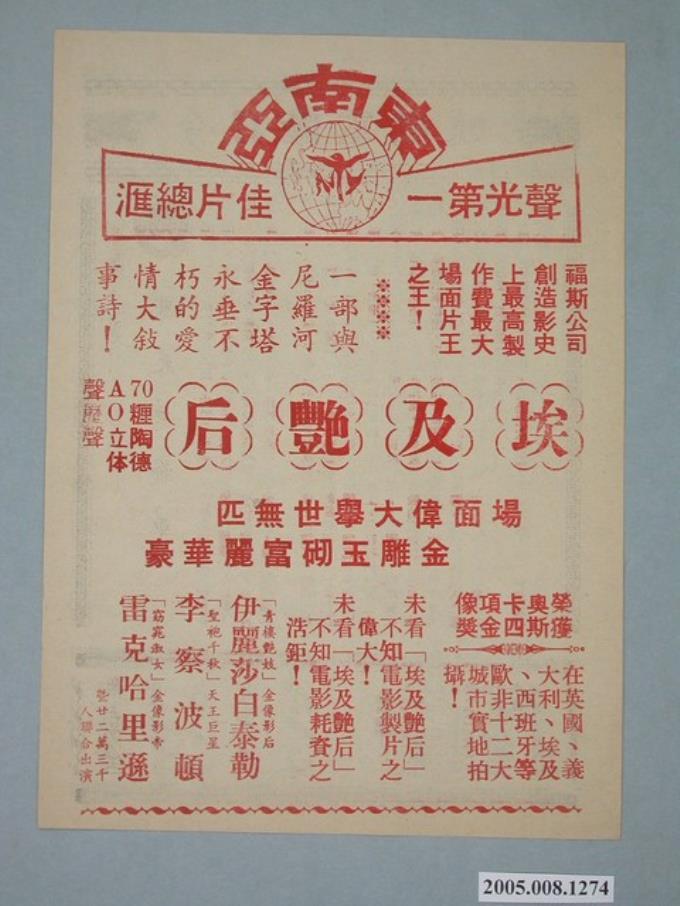 東南亞
聲光第一
佳片總滙
福斯公司
創造影史
上最高製
作費最大
場面片王
之王！
※※※※
一部與
尼羅河
金字塔
永垂不
朽的愛
情大敍
事詩！
埃及艷后
70糎陶德
AO立体
聲歷聲
場面偉大擧世無匹
金雕玉砌富麗華豪
榮獲
奧斯
卡四
項金
像獎
在英國、義
大利、埃及
、西班牙等
歐非十二大
城市實地拍
攝！
未看「埃及艷后」
不知電影製片之
偉大！
未看「埃及艷后」
不知電影耗資之
浩鉅！
「青樓艷妓」金像影后
伊麗莎白泰勒
「聖袍千秋」天王巨星
李察波頓
「窈窕淑女」金像影帝
雷克哈里遜
暨廿二萬三千
人聯合出演
2005.008.1274